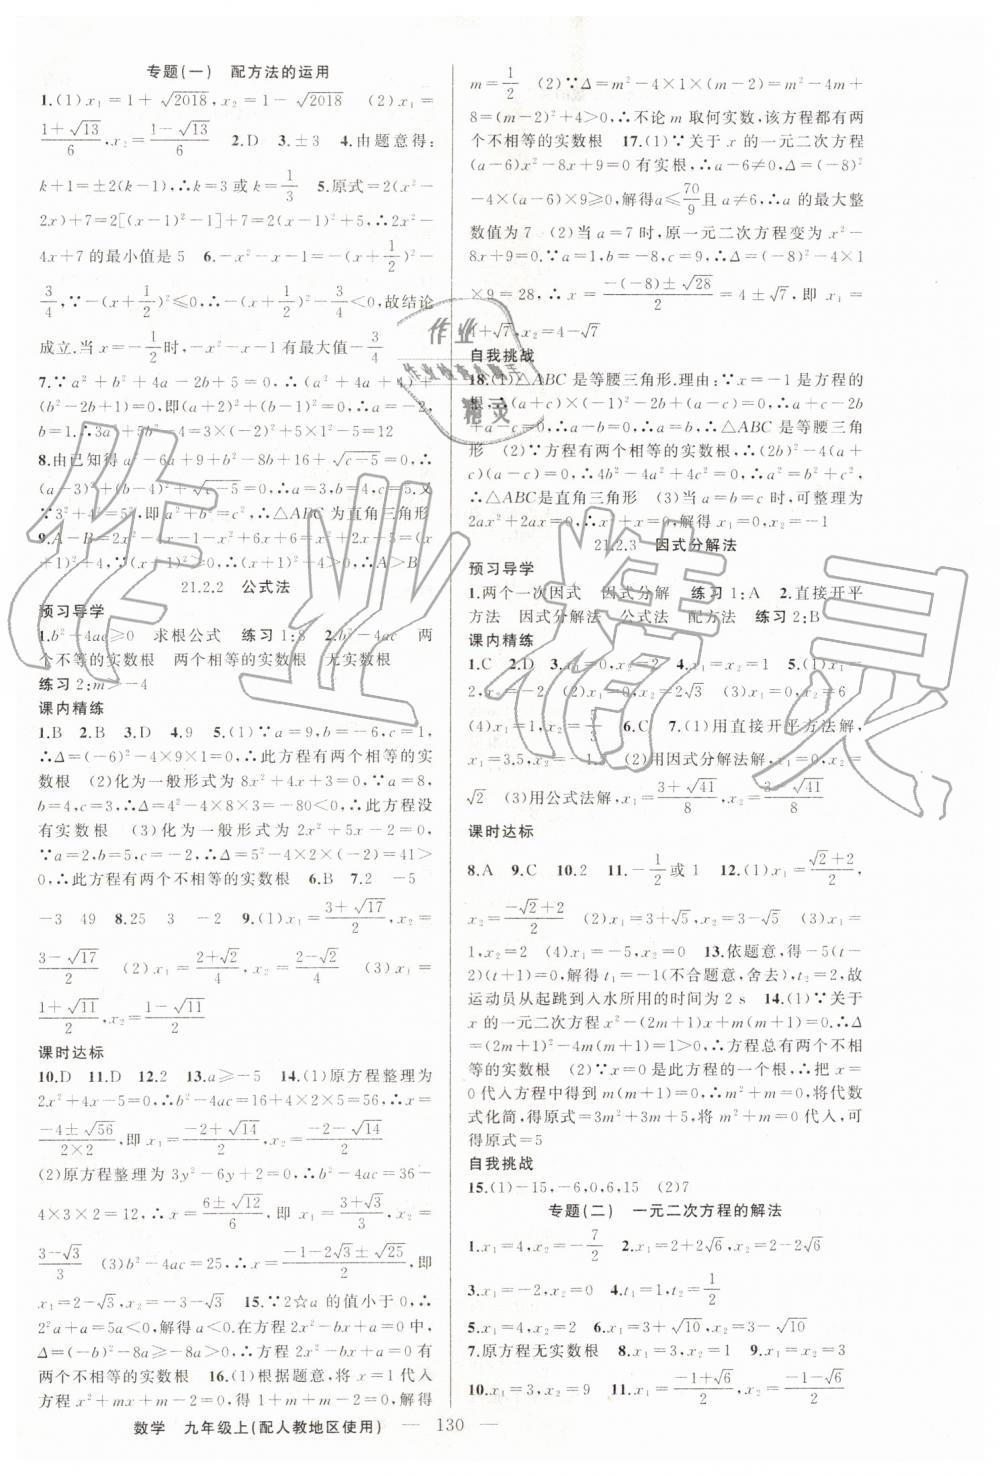 专题(一) 配方法的运用
1.(1)x₁=1+√2018,x₂=1-√2018 (2)x₁=
(1+√13)/6,x₂=(1-√13)/6 2.D 3.±3 4.由题意得:
k+1=±2(k-1),∴k=3或k=1/3 5.原式=2(x²-
2x)+7=2[(x-1)²-1]+7=2(x-1)²+5,∴2x²-
4x+7的最小值是5 6.-x²-x-1=-(x+1/2)²-
3/4,∵-(x+1/2)²≤0,∴-(x+1/2)²-3/4<0,故结论
成立.当x=-1/2时,-x²-x-1有最大值-3/4
7.∵a²+b²+4a-2b+5=0,∴(a²+4a+4)+
(b²-2b+1)=0,即(a+2)²+(b-1)²=0,∴a=-2,
b=1.∴3a²+5b²-4=3×(-2)²+5×1²-5=12
8.由已知得a²-6a+9+b²-8b+16+√(c-5)=0,∴
(a-3)²+(b-4)²+√(c-5)=0,∴a=3,b=4,c=5.又
∵3²+4²=5²,即a²+b²=c²,∴△ABC为直角三角形
+1)²+4,∵(x+1)²≥0,∴(x+1)²+4>0,∴A>B
21.2.2 公式法
预习导学
1.b²-4ac≥0 求根公式 练习1:8 2.b²-4ac 两
个不等的实数根 两个相等的实数根 无实数根
练习2:m>-4
课内精练
1.B 2.B 3.D 4.9 5.(1)∵a=9,b=-6,c=1,
∴Δ=(-6)²-4×9×1=0,∴此方程有两个相等的实
数根 (2)化为一般形式为8x²+4x+3=0,∵a=8,
b=4,c=3,∴Δ=4²-4×8×3=-80<0,∴此方程没
有实数根 (3)化为一般形式为2x²+5x-2=0.
∵a=2,b=5,c=-2,∴Δ=5²-4×2×(-2)=41>
0,∴此方程有两个不相等的实数根 6.B 7.2 -5
-3 49 8.25 3 -2 9.(1)x₁=(3+√17)/2,x₂=
(3-√17)/2 (2)x₁=(2+√2)/4,x₂=(2-√2)/4 (3)x₁=
(1+√11)/2,x₂=(1-√11)/2
课时达标
10.D 11.D 12.2 13.a≥-5 14.(1)原方程整理为
2x²+4x-5=0,∴b²-4ac=16+4×2×5=56,∴x=
(-4±√56)/(2×2),即x₁=(-2+√14)/2,x₂=(-2-√14)/2
(2)原方程整理为3y²-6y+2=0,∴b²-4ac=36-
4×3×2=12,∴x=(6±√12)/6,即x₁=(3+√3)/3,x₂=
(3-√3)/3 (3)∴b²-4ac=25,∴x=(-1-2√3±√25)/2,即
x₁=2-√3,x₂=-3-√3 15.∵2☆a的值小于0,∴
2²a+a=5a<0,解得a<0.在方程2x²-bx+a=0中,
Δ=(-b)²-8a≥-8a>0,∴方程2x²-bx+a=0有
两个不相等的实数根 16.(1)根据题意,将x=1代入
方程x²+mx+m-2=0,得1+m+m-2=0,解得
m=1/2 (2)∵Δ=m²-4×1×(m-2)=m²-4m+
8=(m-2)²+4>0,∴不论m取何实数,该方程都有两
个不相等的实数根 17.(1)∵关于x的一元二次方程
(a-6)x²-8x+9=0有实根,∴a-6≠0,Δ=(-8)²
-4×(a-6)×9≥0,解得a≤70/9且a≠6,∴a的最大整
数值为7 (2)当a=7时,原一元二次方程变为x²-
8x+9=0.∵a=1,b=-8,c=9,∴Δ=(-8)²-4×1
×9=28,∴x=(-(-8)±√28)/2=4±√7,即x₁=
4+√7,x₂=4-√7
自我挑战
18.(1)△ABC是等腰三角形.理由:∵x=-1是方程的
根,∴(a+c)×(-1)²-2b+(a-c)=0,∴a+c-2b
+a-c=0,∴a-b=0,∴a=b,∴△ABC是等腰三角
形 (2)∵方程有两个相等的实数根,∴(2b)²-4(a+
c)(a-c)=0,∴4b²-4a²+4c²=0,∴a²=b²+c²,
∴△ABC是直角三角形 (3)当a=b=c时,可整理为
2ax²+2ax=0,∴x²+x=0,解得x₁=0,x₂=-1
21.2.3 因式分解法
预习导学
1.两个一次因式 因式分解 练习1:A 2.直接开平
方法 因式分解法 公式法 配方法 练习2:B
课内精练
1.C 2.D 3.x₁=0,x₂=2 4.x₁=x₂=1 5.(1)x₁
=2,x₂=-2 (2)x₁=0,x₂=2√3 (3)x₁=0,x₂=6
6.C 7.(1)用直接开平方法解,
√2 (3)用公式法解,x₁=(3+√41)/8,x₂=(3-√41)/8
课时达标
8.A 9.C 10.2 11.-1/2或1 12.(1)x₁=(√2+2)/2,
x₂=(-√2+2)/2 (2)x₁=3+√5,x₂=3-√5 (3)x₁=
1,x₂=2 (4)x₁=-5,x₂=0 13.依题意,得-5(t-
2)(t+1)=0,解得t₁=-1(不合题意,舍去),t₂=2,故
运动员从起跳到入水所用的时间为2 s 14.(1)∵关于
x的一元二次方程x²-(2m+1)x+m(m+1)=0.∴Δ
=(2m+1)²-4m(m+1)=1>0,∴方程总有两个不相
等的实数根 (2)∵x=0是此方程的一个根,∴把x=
0代入方程中得到m(m+1)=0,∴m²+m=0,将代数
式化简,得原式=3m²+3m+5,将m²+m=0代入,可
得原式=5
自我挑战
15.(1)-15,-6,0,6,15 (2)7
专题(二) 一元二次方程的解法
1.x₁=4,x₂=-7/2 2.x₁=2+2√6,x₂=2-2√6
3.x₁=-2,x₂=0 4.t₁=1,t₂=1/2
5.x₁=4,x₂=2 6.x₁=3+√10,x₂=3-√10
7.原方程无实数根 8.x₁=3,x₂=1 9.x₁=x₂=3
10.x₁=3,x₂=4 11.x₁=(-1+√6)/2,x₂=(-1-√6)/2
数学 九年级上(配人教地区使用) — 130 —
作业精灵